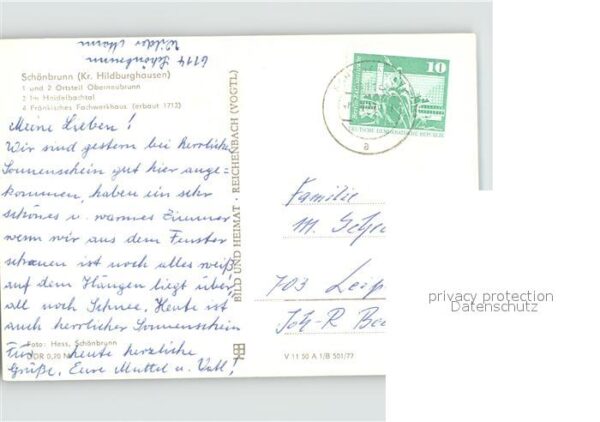 6114 Schönbrunn
Wilder Mann
Schönbrunn (Kr. Hildburghausen)
1 und 2 Ortsteil Oberneubrunn
3 Im Heidelbachtal
4 Fränkisches Fachwerkhaus (erbaut 1713)
Meine Lieben!
Wir sind gestern bei herrlichem
Sonnenschein gut hier ange=
kommen, haben ein sehr
schönes u. warmes Zimmer
wenn wir aus dem Fenster
schauen ist noch alles weiß
auf dem Hängen liegt über
all noch Schnee. Heute ist
auch herrlicher Sonnenschein
Für heute herzliche
Grüße, Eure Mutti u. Vati!
Foto: Hess, Schönbrunn
DDR 0,20 M
BILD UND HEIMAT · REICHENBACH (VOGTL)
V 11 50 A 1/B 501/77
10
DEUTSCHE DEMOKRATISCHE REPUBLIK
a
Familie
M.
703 Leip
Joh-R Be
privacy protection
Datenschutz